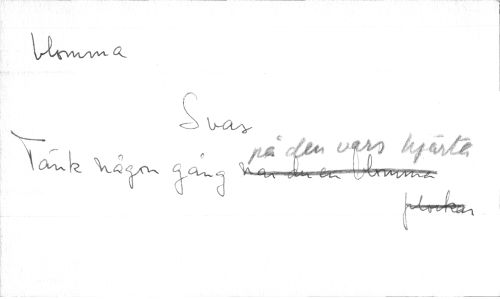 blomma
Svar
på den vars hjärta
Tänk någon gång när du en blomma
plockar